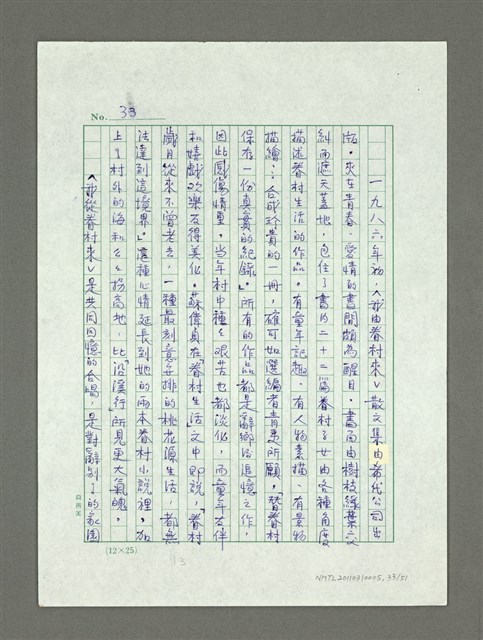 No. 33
一九八六年初，〈我由眷村來〉散文集由希代公司出
版。夾在青春、愛情的書間頗為醒目。書面由樹枝綠葉交
糾而遮天蓋地，包住了書內二十二篇眷村子女由各種角度
描述眷村生活的作品。有童年記趣、有人物素描、有景物
描繪…，合成珍貴的一冊，確可如選編者青夷所願，「替眷村
保存一份真實的紀錄」。所有的作品都是辭鄉後追憶之作，
因此感傷情重。當年村中種種艱苦也都淡化，而童年友伴
和嬉戲歡樂反得美化。蘇偉貞在「眷村生活」文中即說，「眷村
歲月從來不曾老去，一種最刻意安排的桃花源生活，都無
法達到這境界」。這種心情延長到她的兩本眷村小說裡，加
上了村外的海和公墓高地，比「沒溪行」所見更大氣魄。
〈我從眷村來〉是共同回憶的合唱，是對辭別了的家園
(12×25)
3
NMTL20110310005, 33/51